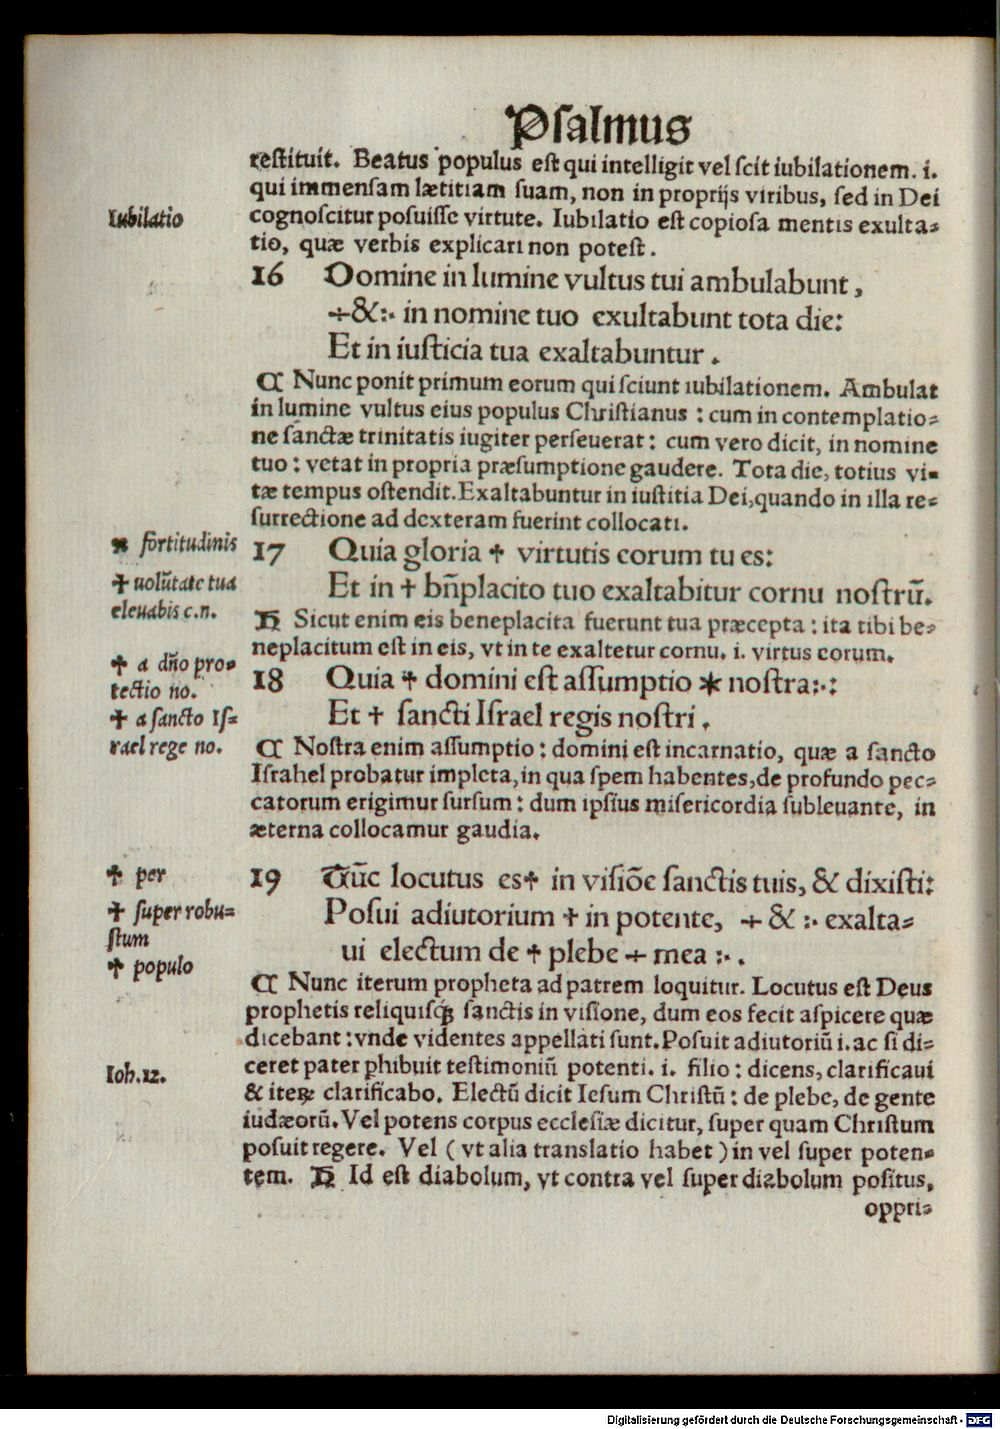 Psalmus
restituit. Beatus populus est qui intelligit vel scit iubilationem. i.
qui immensam lætitiam suam, non in proprijs viribus, sed in Dei
Iubilatio
cognoscitur posuisse virtute. Iubilatio est copiosa mentis exulta⸗
tio, quæ verbis explicari non potest.
16 Domine in lumine vultus tui ambulabunt,
÷&:· in nomine tuo exultabunt tota die:
Et in iusticia tua exaltabuntur.
¶ Nunc ponit primum eorum qui sciunt iubilationem. Ambulat
in lumine vultus eius populus Christianus : cum in contemplatio⸗
ne sanctæ trinitatis iugiter perseuerat : cum vero dicit, in nomine
tuo : vetat in propria præsumptione gaudere. Tota die, totius vi⸗
tæ tempus ostendit. Exaltabuntur in iustitia Dei, quando in illa re⸗
surrectione ad dexteram fuerint collocati.
✢ fortitudinis
17 Quia gloria ✢ virtutis eorum tu es:
✢ uolũtate tua
eleuabis c.n.
Et in ✢ bñplacito tuo exaltabitur cornu nostrũ.
H Sicut enim eis beneplacita fuerunt tua præcepta : ita tibi be⸗
neplacitum est in eis, vt in te exaltetur cornu. i. virtus eorum.
✢ a dño pro⸗
tectio no.
18 Quia ✢ domini est assumptio * nostra:·:
✢ a sancto Is⸗
rael rege no.
Et ✢ sancti Israel regis nostri.
¶ Nostra enim assumptio : domini est incarnatio, quæ a sancto
Israhel probatur impleta, in qua spem habentes, de profundo pec⸗
catorum erigimur sursum : dum ipsius misericordia subleuante, in
æterna collocamur gaudia.
✢ per
19 Tũc locutus es✢ in visiõe sanctis tuis, & dixisti:
✢ super robu⸗
stum
Posui adiutorium ✢ in potente, ÷ & :· exalta⸗
✢ populo
ui electum de ✢ plebe ÷ mea :· .
¶ Nunc iterum propheta ad patrem loquitur. Locutus est Deus
prophetis reliquisqꝫ sanctis in visione, dum eos fecit aspicere quæ
dicebant : vnde videntes appellati sunt. Posuit adiutoriũ i. ac si di⸗
Ioh.12.
ceret pater ꝑhibuit testimoniũ potenti. i. filio : dicens, clarificaui
& iteꝝ clarificabo. Electũ dicit Iesum Christũ : de plebe, de gente
iudæorũ. Vel potens corpus ecclesiæ dicitur, super quam Christum
posuit regere. Vel ( vt alia translatio habet ) in vel super poten⸗
tem. H Id est diabolum, vt contra vel super diabolum positus,
oppri⸗
Digitalisierung gefördert durch die Deutsche Forschungsgemeinschaft - DFG